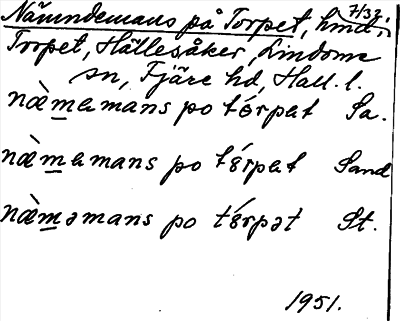 Nämndemans på Torpet, hmd, 7/32;
Torpet, Hällesåker, Lindome
sn, Fjäre hd, Hall. l.
næ̀mamans po tɵ́rpət Sa.
næ̀mamans po tɵ́rpət Sand
næ̀məmans po tɵ́rpət St.
1951.